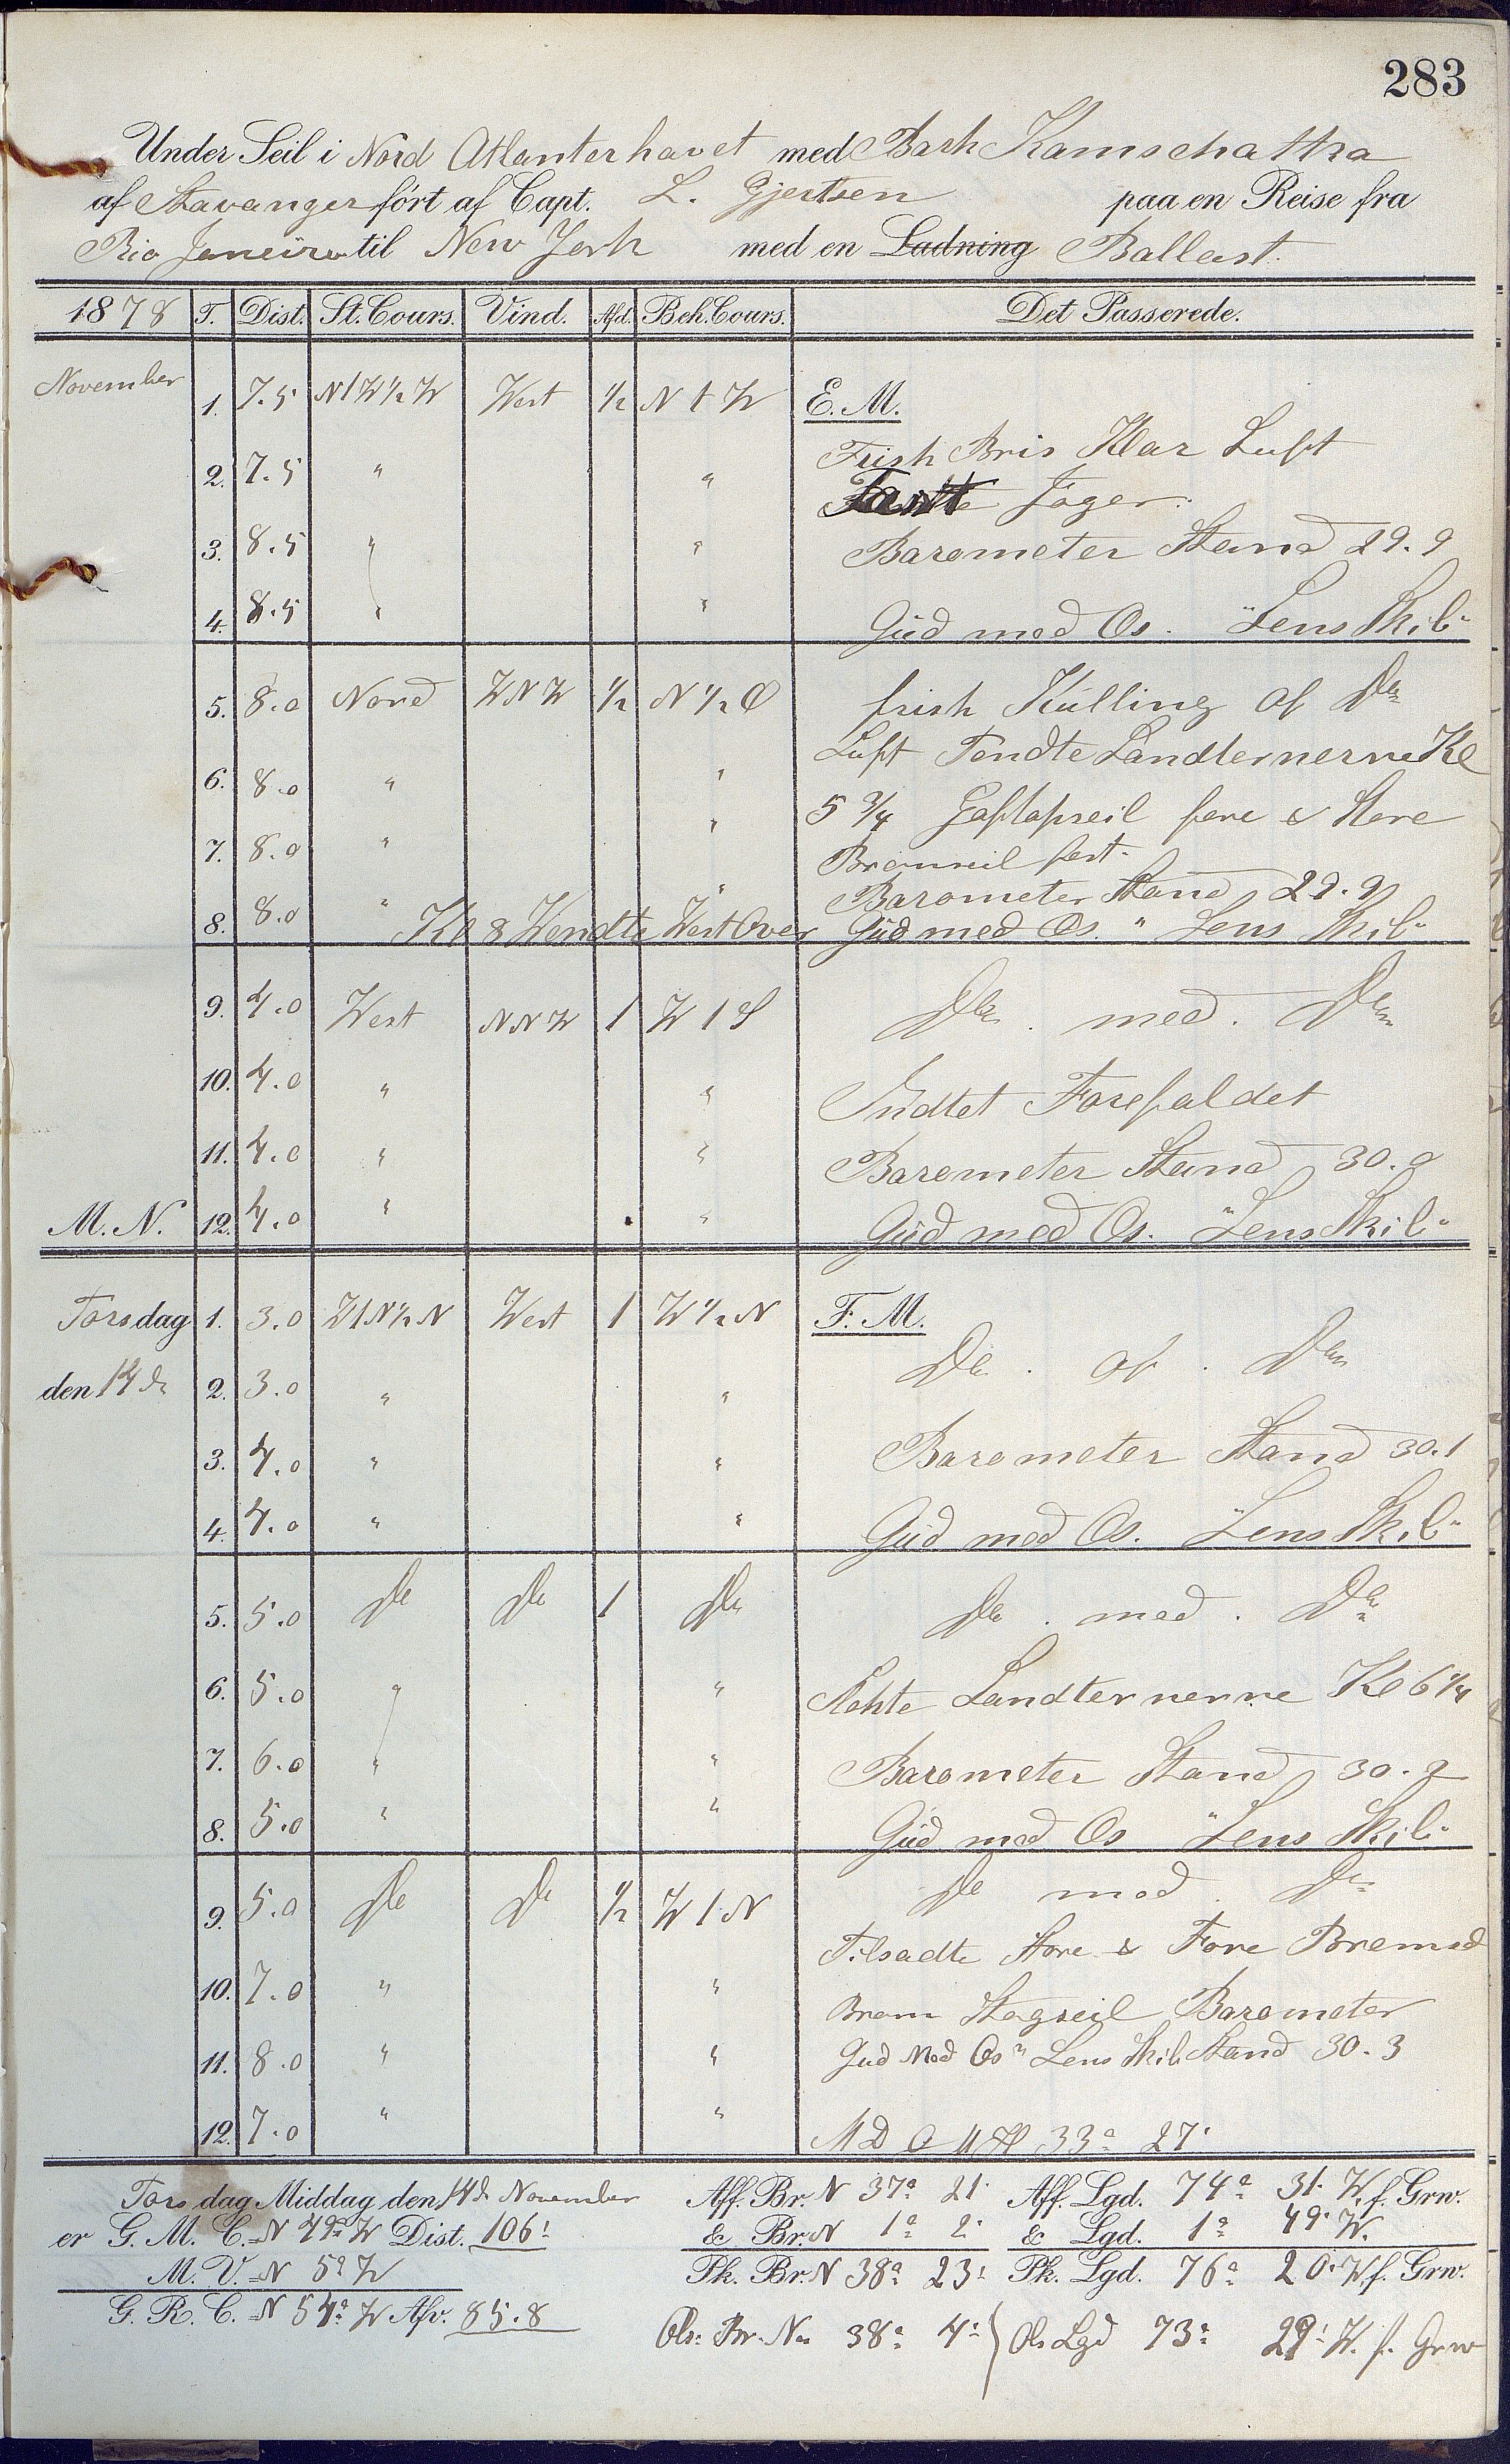 283
Under Seil i Nord Atlanterhavet med Bark Kamschatka
af Stavanger fört af Capt. L. Gjertsen paa en Reise fra
Rio Janeiro til New York med en Ladning Ballast.
1878 T. Dist. St. Cours. Vind. Afd. Beh. Cours. Det Passerede.
November 1. 7.5 N t W ½ W West ½ N t W E. M.
Frisk Bris Klar Luft
2. 7.5 " "
Jager.
3. 8.5 " " Barometer Stand 29.9
4. 8.5 " " Gud med Os. "Lens Skib"
5. 8.0 Nord WNW ½ N ½ O frisk Kulling af Do
Luft Tendte Landternerne Kl
6. 8.0 " " 5 ¾ Gaftapseil fore & Store
7. 8.0 " " Bramseil fast.
Barometer Stand 29.9
8. 8.0 " Kl 8 Vendte West Over " Gud med Os. "Lens Skib"
9. 4.0 West NNW 1 W t S Do. med. Do
10. 4.0 " " Indtet Forefaldet
11. 4.0 " " Barometer Stand 30.0
M. N. 12. 4.0 " " Gud med Os. "Lens Skib"
Torsdag 1. 3.0 W t N ½ N West 1 W ½ N F. M.
Do. af. Do
den 14de 2. 3.0 " "
3. 4.0 " " Barometer Stand 30.1
4. 4.0 " " Gud med Os. "Lens Skib"
5. 5.0 Do Do 1 Do Do. med. Do
6. 5.0 " " Slekte Landternerne Kl 6 ¼
7. 6.0 " " Barometer Stand 30.2
8. 5.0 " " Gud med Os "Lens Skib"
9. 5.0 Do Do ½ W t N Do med. Do
Tilsadte Store & Fore Bramsd
10. 7.0 " " Bram Stagseil Barometer
11. 8.0 " " Gud Med Os "Lens Skib Stand 30.3
12. 7.0 " " M D 33° 27'
Torsdag Middag den 14de November Aff. Br. N 37° 21' Aff. Lgd. 74° 31' W. f. Grw.
er G. M. C. N 49° W Dist. 106' & Br. N 1° 2' & Lgd. 1° 49' W.
M. V. N 5° W Pk. Br. N 38° 23' Pk. Lgd. 76° 20' W. f. Grw.
G. R. C. N 54° W Afv. 85.8 Obs. Br. N. 38° 4' Obs Lgd 73° 29' W. f. Grw